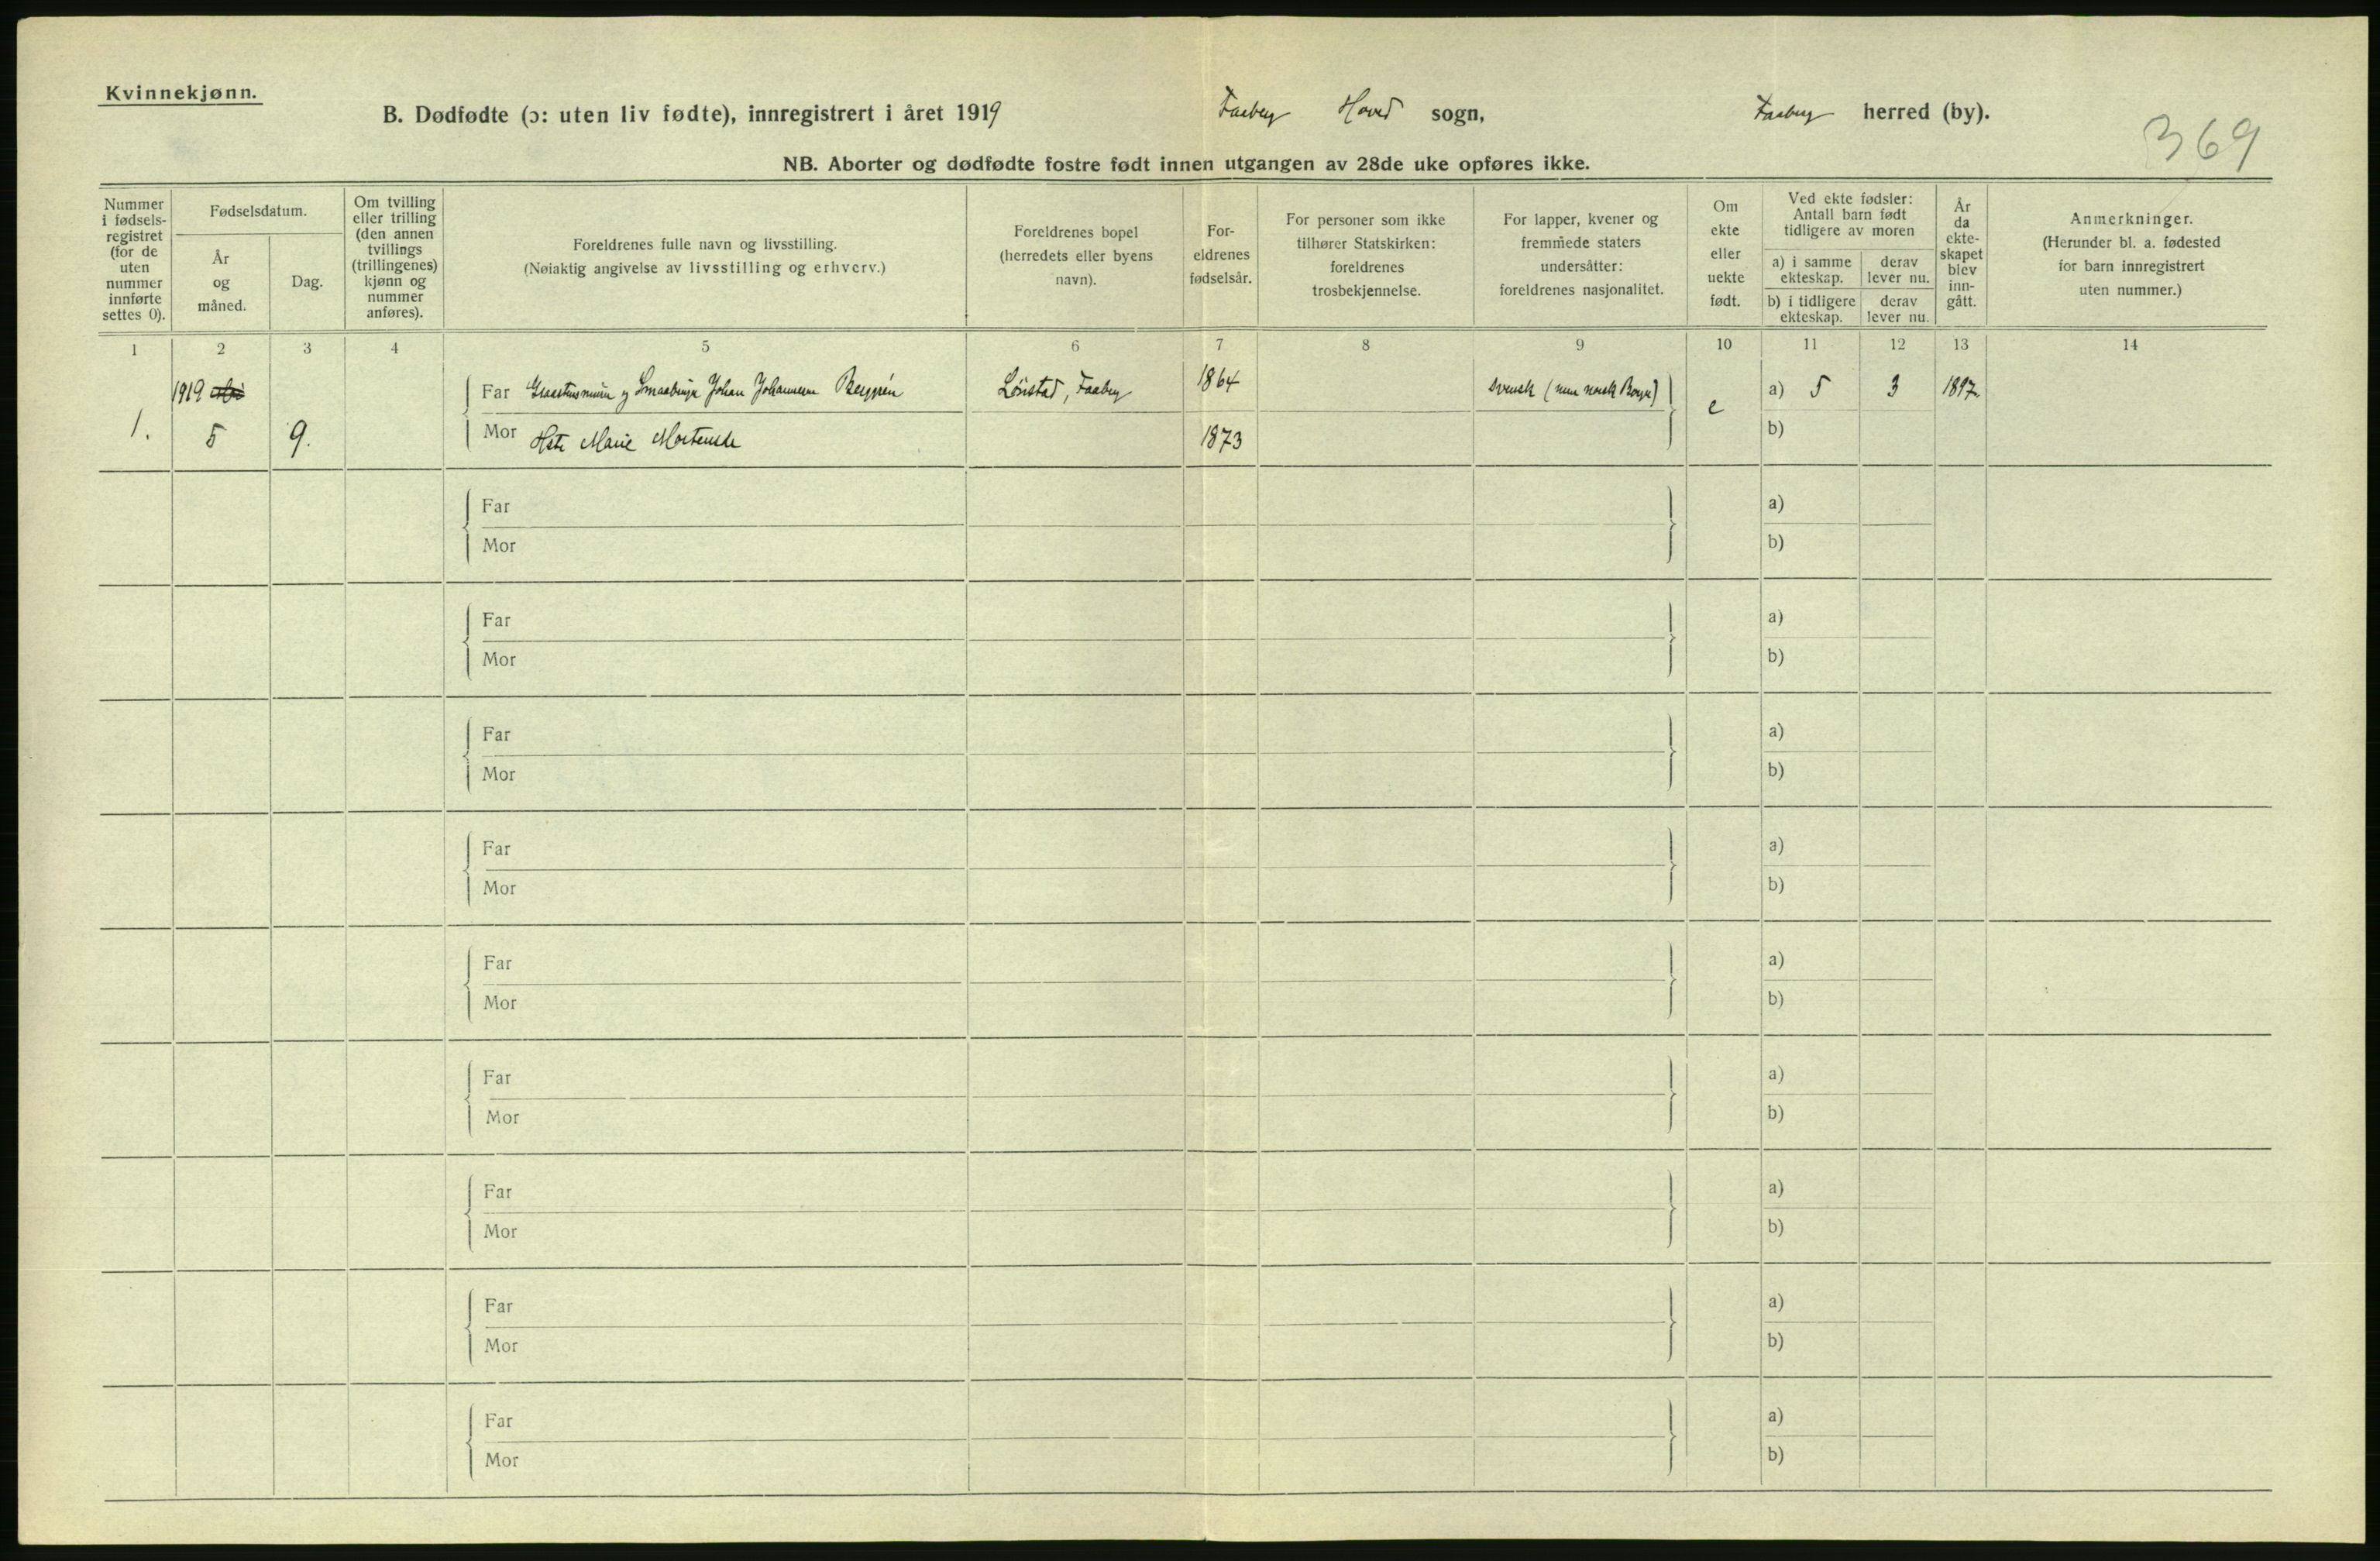 Kvinnekjønn.
B. Dødfødte (ɔ: uten liv fødte), innregistrert i året 1919 Faaberg Hoved sogn, Faaberg herred (by).
369
NB. Aborter og dødfødte fostre født innen utgangen av 28de uke opføres ikke.
Nummer i fødsels-registret (for de uten nummer innførte settes 0).
Fødselsdatum.
År og måned.
Dag.
Om tvilling eller trilling (den annen tvillings (trillingenes) kjønn og nummer anføres).
Foreldrenes fulle navn og livsstilling.
(Nøiaktig angivelse av livsstilling og erhverv.)
Foreldrenes bopel (herredets eller byens navn).
For-eldrenes fødselsår.
For personer som ikke tilhører Statskirken: foreldrenes trosbekjennelse.
For lapper, kvener og fremmede staters undersåtter: foreldrenes nasjonalitet.
Om ekte eller uekte født.
Ved ekte fødsler: Antall barn født tidligere av moren
a) i samme ekteskap.
derav lever nu.
b) i tidligere ekteskap.
derav lever nu.
År da ekte-skapet blev inn-gått.
Anmerkninger.
(Herunder bl. a. fødested for barn innregistrert uten nummer.)
1 2 3 4 5 6 7 8 9 10 11 12 13 14
1919
Far Johan Johannesen Berggrén Lönstad, Faaberg 1864 svensk (nu norsk Borger) e a) 5 3 1897
1. 5 9.
Mor Marie 1873 b)
Far a)
Mor b)
Far a)
Mor b)
Far a)
Mor b)
Far a)
Mor b)
Far a)
Mor b)
Far a)
Mor b)
Far a)
Mor b)
Far a)
Mor b)
Far a)
Mor b)